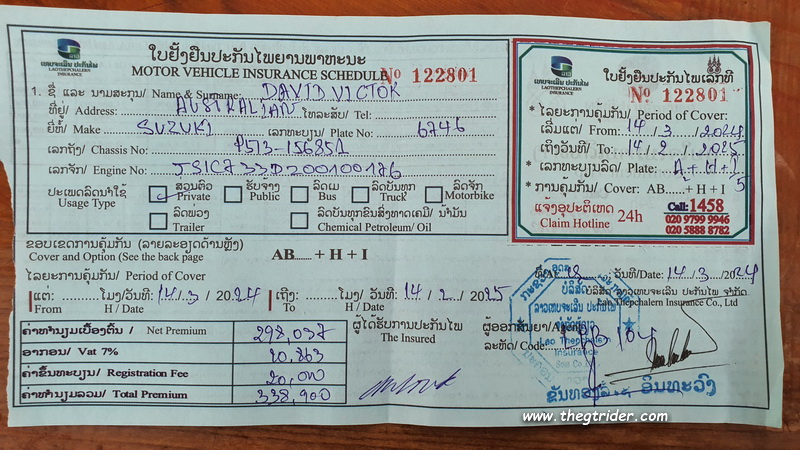 ໃບຢັ້ງຢືນປະກັນໄພຍານພາຫະນະ
MOTOR VEHICLE INSURANCE SCHEDULE Nº 122801
ເທບຈະເລີນ ປະກັນໄພ
LAOTHEPCHALERN
INSURANCE
1. ຊື່ ແລະ ນາມສະກຸນ/ Name & Surname: DAVID VICTOR
ທີ່ຢູ່/ Address: AUSTRALIAN ໂທລະສັບ/ Tel:
ຍີ່ຫໍ້/ Make SUZUKI ເລກທະບຽນ/ Plate No: 6746
ເລກຖັງ/ Chassis No:
ເລກຈັກ/ Engine No:
ປະເພດລົດນຳໃຊ້ ສ່ວນຕົວ ຮັບຈ້າງ ລົດເມ ລົດບັນທຸກ ລົດຈັກ
Usage Type Private Public Bus Truck Motorbike
ລົດພ່ວງ ລົດບັນທຸກຂົນສົ່ງທາດເຄມີ/ ນ້ຳມັນ
Trailer Chemical Petroleum/ Oil
ຂອບເຂດການຄຸ້ມກັນ (ລາຍລະອຽດດ້ານຫຼັງ)
Cover and Option (See the back page AB...... + H + I
ໄລຍະການຄຸ້ມກັນ/ Period of Cover
ແຕ່: ໂມງ/ວັນທີ: 14/3/2024 ເຖິງ: ໂມງ/ ວັນທີ: 14/2/2025
From H / Date To H / Date
ຄ່າທຳນຽມເບື້ອງຕົ້ນ/ Net Premium 298,037
ອາກອນ/ Vat 7% 20,863
ຄ່າຂຶ້ນທະບຽນ/ Registration Fee 20,000
ຄ່າທຳນຽມລວມ/ Total Premium 338,900
ຜູ້ໄດ້ຮັບການປະກັນໄພ
The Insured
ເທບຈະເລີນ ປະກັນໄພ
LAOTHEPCHALERN
INSURANCE
ໃບຢັ້ງຢືນປະກັນໄພເລກທີ
Nº 122801
* ໄລຍະການຄຸ້ມກັນ/ Period of Cover:
ເລີ່ມແຕ່/ From: 14/3/2024
ເຖິງວັນທີ/ To: 14/2/2025
* ເລກທະບຽນລົດ/ Plate: A+H+I
* ການຄຸ້ມກັນ/ Cover: AB......+ H + I
ແຈ້ງອຸປະຕິເຫດ 24h Call: 1458
Claim Hotline 020 9799 9946
020 5888 8782
ວັນທີ/Date: 14/3/2024
ບໍລິສັດ ລາວເທບຈະເລີນ ປະກັນໄພ ຈຳກັດ
Lao Thepchalern Insurance Co., Ltd
ຜູ້ອອກສັນຍາ/
ລະຫັດ/ Code
Lao Thepchalern
Insurance
www.thegtrider.com